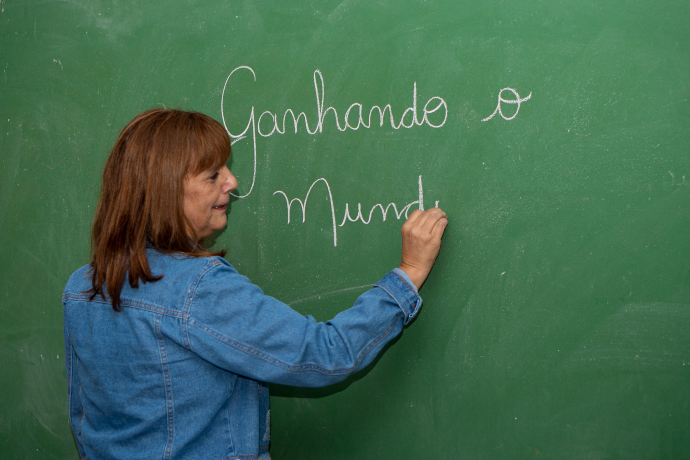 Ganhando o
Mund